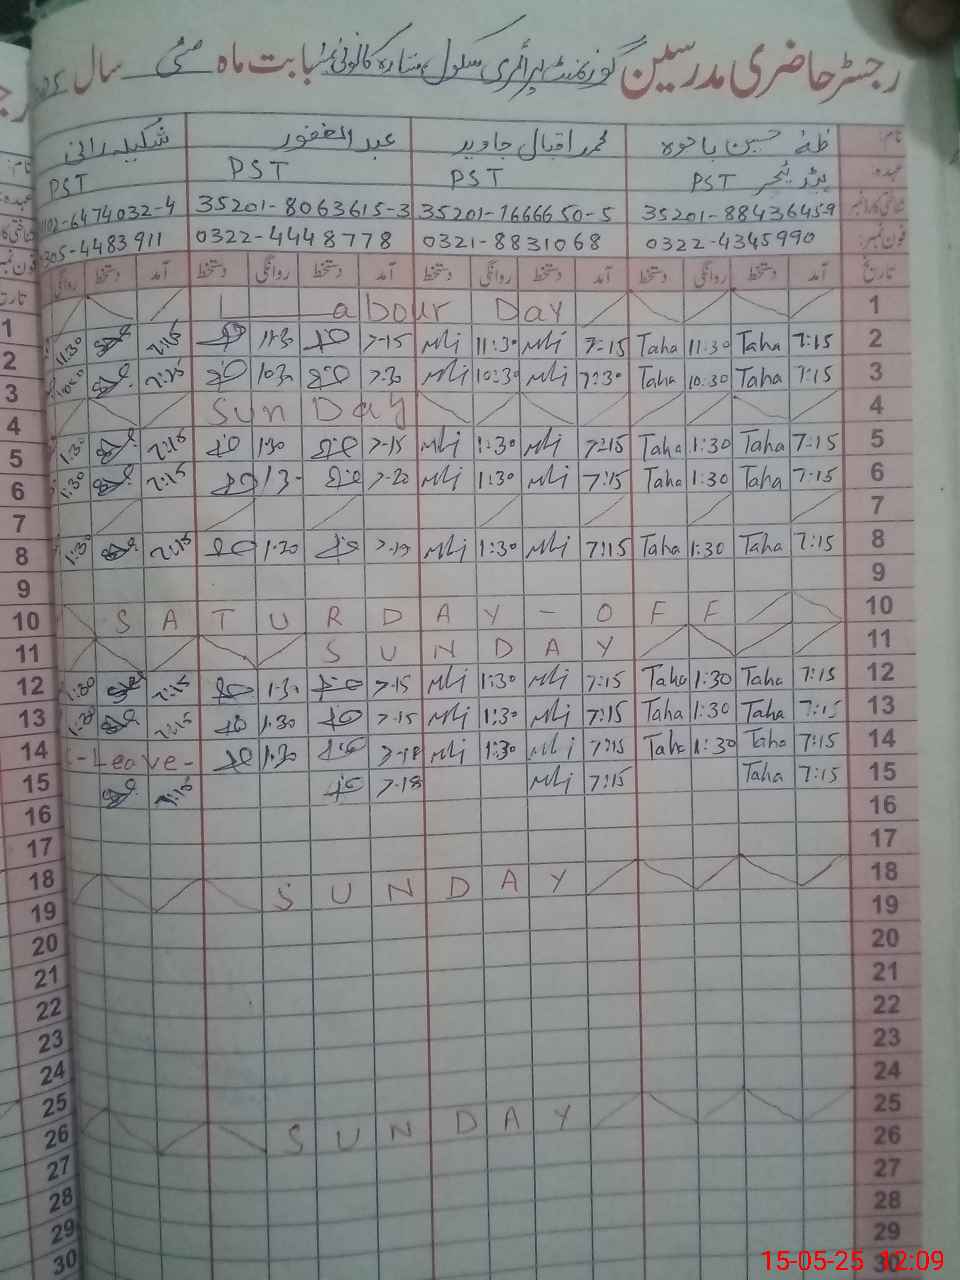 رجسٹر حاضری مدرسین گورنمنٹ پرائمری سکول ستارہ کالونی بابت ماہ مئی سال
نام: طہٰ حسین باجوہ محمد اقبال جاوید عبدالغفور شکیلہ رانی
عہدہ: ہیڈ ٹیچر PST PST PST PST
شناختی کارڈ نمبر 35201-88436459 35201-1666650-5 35201-8063615-3 102-6474032-4
فون نمبر: 0322-4345990 0321-8831068 0322-4448778 305-4483911
تاریخ آمد دستخط روانگی دستخط آمد دستخط روانگی دستخط آمد دستخط روانگی دستخط آمد دستخط روانگی
1 Labour Day
2 7:15 Taha 11:30 Taha 7:15 11:30 7-15 11:30 7:15 11:30
3 7:15 Taha 10:30 Taha 7:30 10:30 7-30 1030 7:15
4 Sun Day
5 7:15 Taha 1:30 Taha 7:15 1:30 7-15 1:30 7:15 1:30
6 7:15 Taha 1:30 Taha 7:15 1:30 7-20 7:15 1:30
7
8 7:15 Taha 1:30 Taha 7:15 1:30 1:20 7:15 1:30
9
10 SATURDAY-OFF
11 SUNDAY
12 7:15 Taha 1:30 Taha 7:15 1:30 7-15 1:30 7:15 1:30
13 7:15 Taha 1:30 Taha 7:15 1:30 7-15 1:30 7:15
14 7:15 Taha 1:30 Taha 7:15 1:30 7-18 1:30 -Leave-
15 7:15 Taha 7:15 7-18 7:15
16
17
18 SUNDAY
19
20
21
22
23
24
25 SUNDAY
26
27
28
29
30
15-05-25 12:09